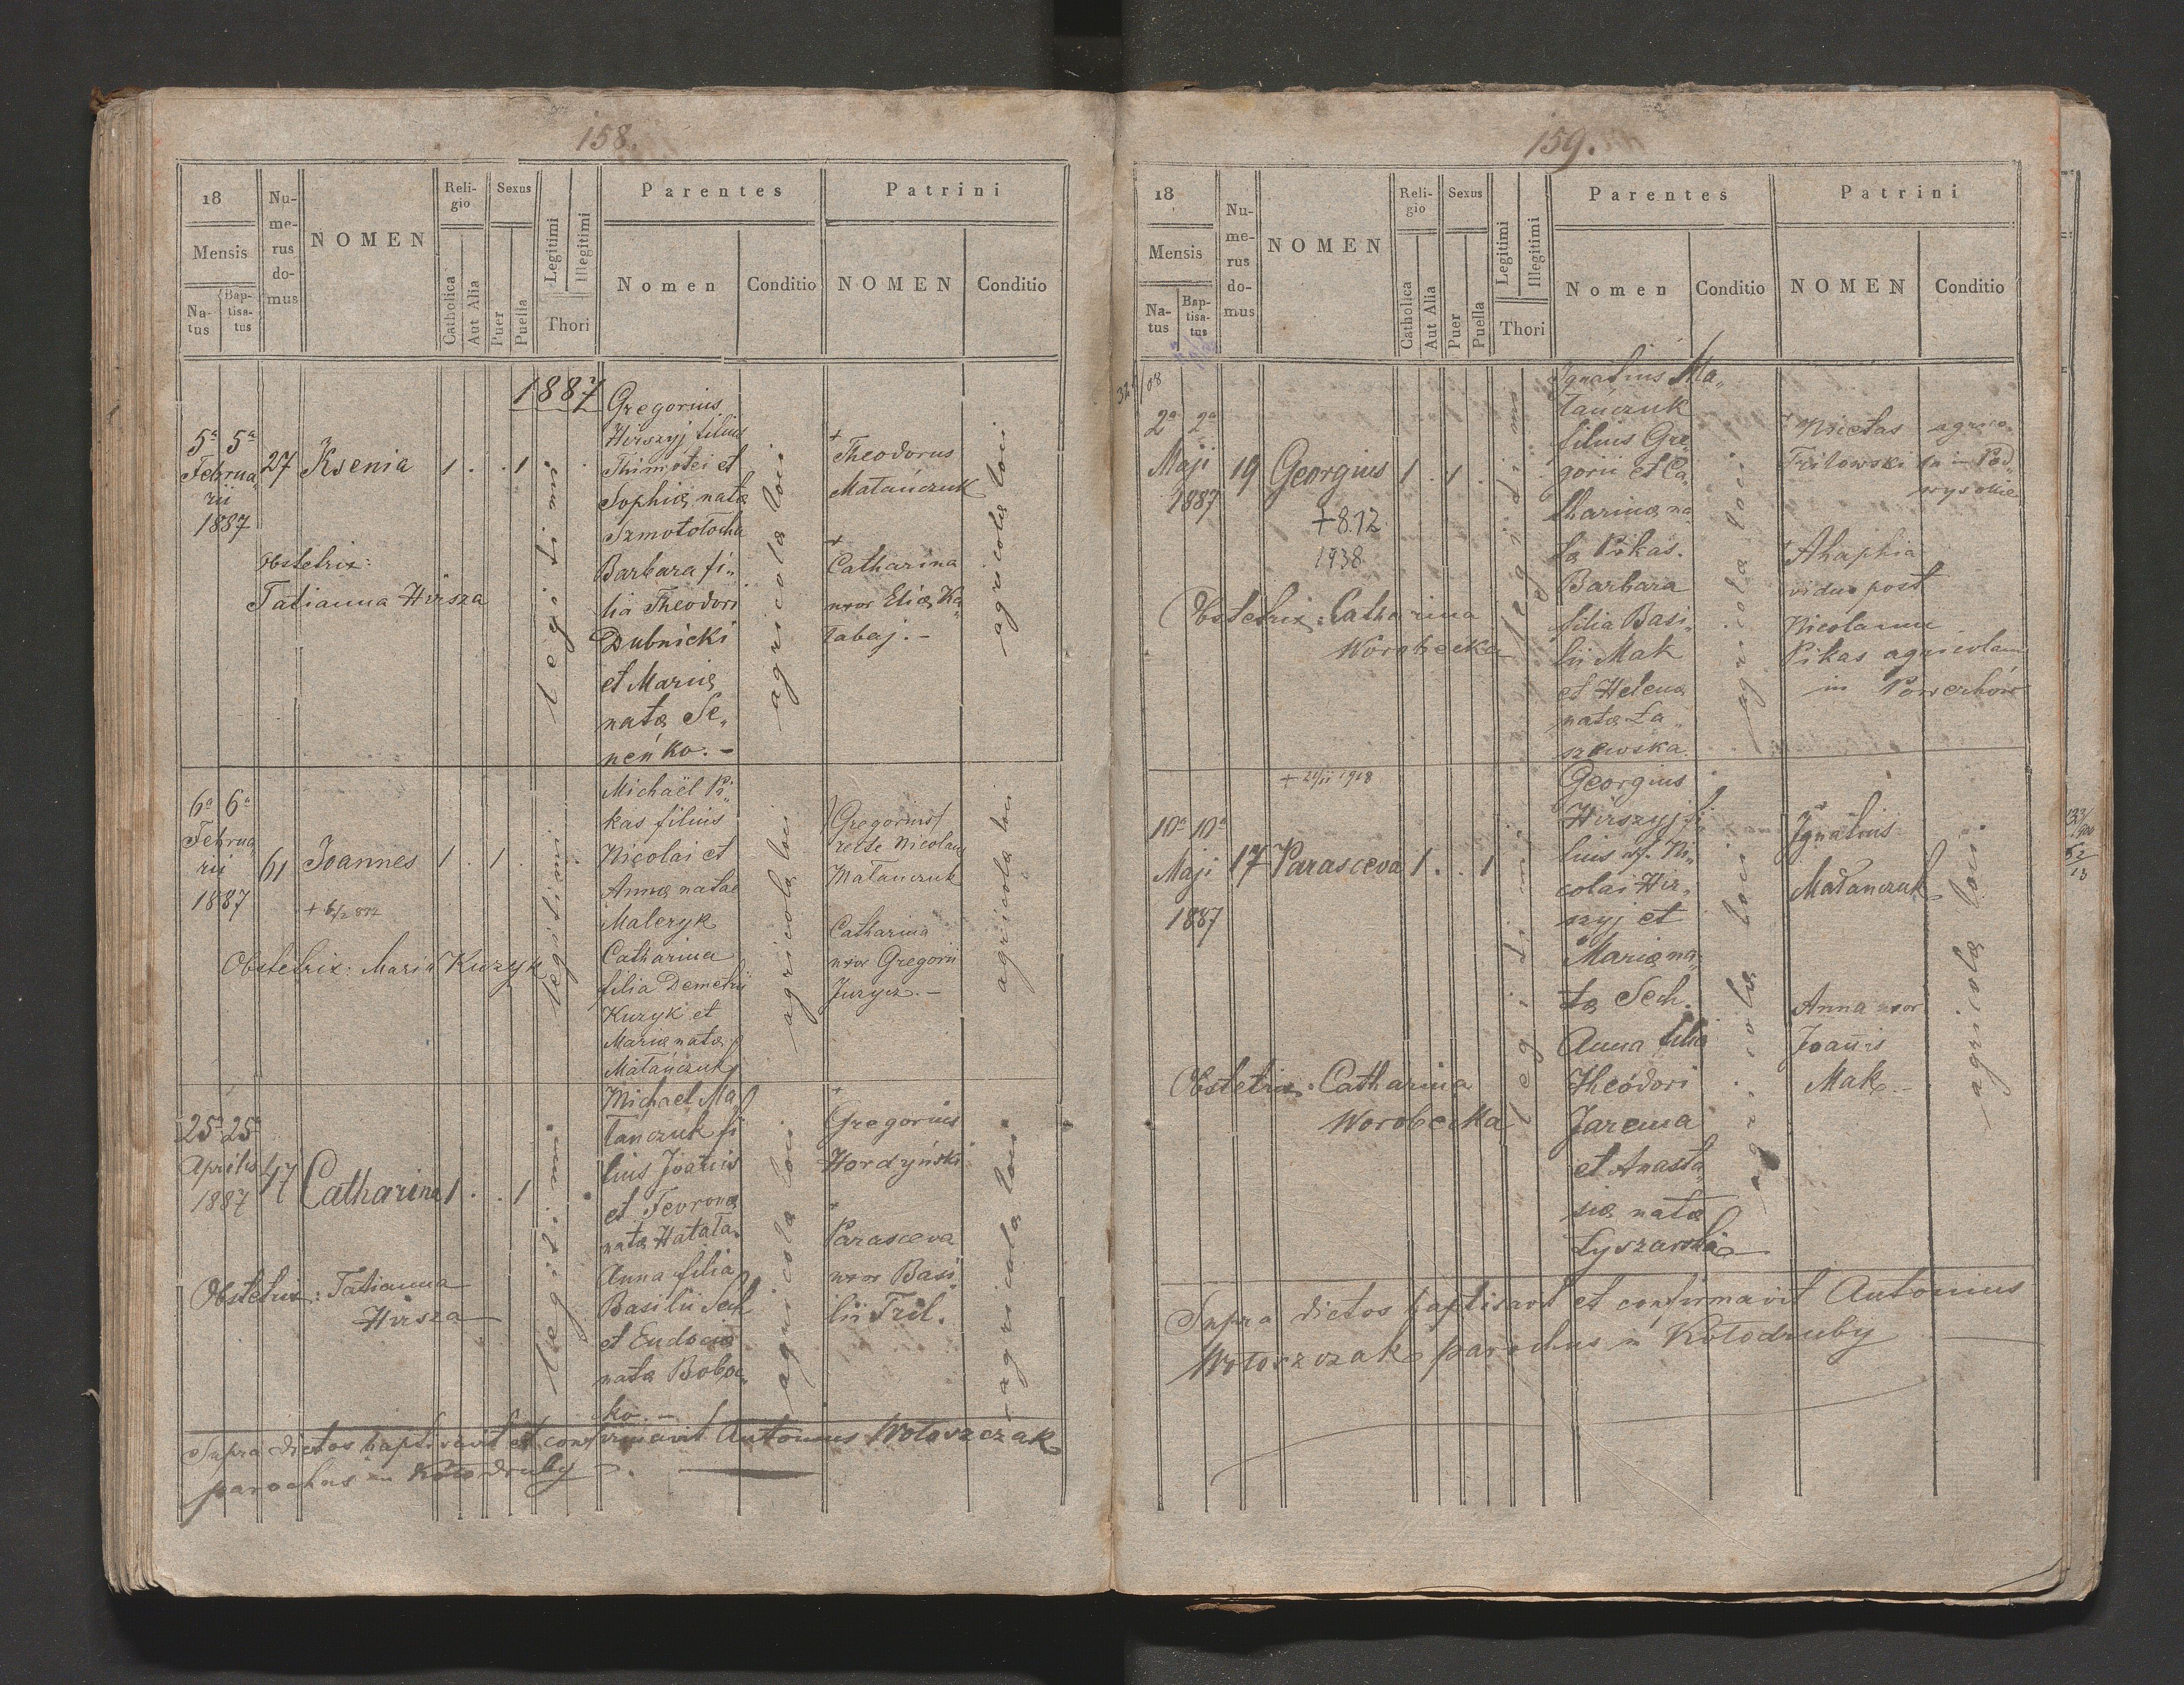 158.
18
Mensis
Na-
tus
Bap-
tisa-
tus
Nu-
me-
rus
do-
mus
NOMEN
Reli-
gio
Catholica
Aut Alia
Sexus
Puer
Puella
Legitimi
Illegitimi
Thori
Parentes
Nomen
Conditio
Patrini
NOMEN
Conditio
1887
5ª 5ª
Februa„
rii
1887
27
Ksenia
1 . . 1 .
legitimi
Gregorius
Hirszyj filius
Thimotei et
Sophiæ natæ
Barbara fi„
lia Theodori
Dubnicki
et Mariæ
natæ Se„
neńko. –
agricolæ loci
+
Theodorus
Matańczuk
+
Catharina
uxor Eliæ Ka„
tabaj. –
agricolæ loci
Obstetrix:
Tatianna Hirsza
6ª 6ª
Februa„
rii
1887
61
Joannes
1 . 1 .
legitimi
Michaël Pi„
kas filius
Nicolai et
Annæ natae
Maleryk
Catharina
filia Demetrii
Kuzyk et
Mariæ natæ
Matańczuk
agricolæ loci
(Gregorius)
recte Nicolaus
Matańczuk
Catharina
uxor Gregorii
Juzycz. –
agricolæ loci
Obstetrix: Maria Kuzyk
25ª 25ª
Aprilis
1887
47
Catharina
1 . . 1
legitimi
Michael Ma„
tańczuk fi„
lius Joannis
et Fevronæ
natæ Hatała.
Anna filia
Basilii Sech
et Eudociæ
natæ Boboc„
ko. –
agricolæ loci
+
Gregorius
Hordyński
+
Parasceva
uxor Basi„
lii Fril.
agricolæ loci
Obstetrix: Tatianna
Hirsza
Supra dictos baptisavit et confirmavit Antonius Wołoszczak
parochus in Kołodruby
159.
18
Mensis
Na-
tus
Bap-
tisa-
tus
Nu-
me-
rus
do-
mus
NOMEN
Reli-
gio
Catholica
Aut Alia
Sexus
Puer
Puella
Legitimi
Illegitimi
Thori
Parentes
Nomen
Conditio
Patrini
NOMEN
Conditio
2ª 2ª
Maji
1887
19
Georgius
+8.12
1938
1 . 1 .
legitimi
Ignatius Ma„
tańczuk
filius Gre„
gorii et Ca„
tharinæ na„
tæ Pikas.
Barbara
filia Basi„
lii Mak
et Helenæ
natæ Ła„
szewska.
agricolæ loci
Nicetas
Fritowski
agrico„
la in Pod„
wysokie
Ahaphia
vidua post
Nicolaum
Pikas agricolam
in Powerchów
Obstetrix: Catharina
Worobecka
10ª 10ª
Maji
1887
17
Parasceva
1 . . 1
legitimi
Georgius
Hirszyj fi„
lius Ni„
colai Hir„
szyj et
Mariæ na„
tæ Sech.
Anna filia
Theodori
Jarema
et Anasta„
siæ natæ
Łyszawska
agricolæ loci
Ignatius
Matańczuk
Anna uxor
Joannis
Mak. –
agricolæ loci
Obstetrix: Catharina
Worobecka
Supra dictos baptisavit et confirmavit Antonius
Wołoszczak parochus in Kołodruby